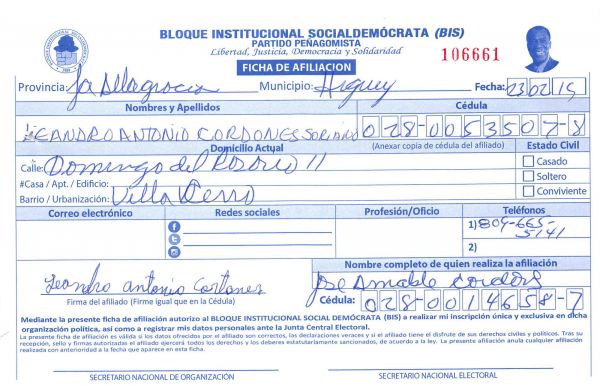 BLOQUE INSTITUCIONAL SOCIALDEMÓCRATA (BIS)
PARTIDO PEÑAGOMISTA
Libertad, Justicia, Democracia y Solidaridad
106661
FICHA DE AFILIACION
Provincia: La Altagracia Municipio: Higuey Fecha: 23 02 15
Nombres y Apellidos Cédula
LEANDRO ANTONIO CORDONES SORIANO 028-0053507-8
Domicilio Actual (Anexar copia de cédula del afiliado) Estado Civil
Calle: Domingo del Rosario 11 Casado
#Casa / Apt. / Edificio: Soltero
Barrio / Urbanización: Villa Cerro Conviviente
Correo electrónico Redes sociales Profesión/Oficio Teléfonos
1) 809-665-5141
2)
Nombre completo de quien realiza la afiliación
Leandro antonio Cortones José Amable Cordones
Firma del afiliado (Firme igual que en la Cédula) Cédula: 028-0014658-7
Mediante la presente ficha de afiliación autorizo al BLOQUE INSTITUCIONAL SOCIAL DEMÓCRATA (BIS) a realizar mi inscripción única y exclusiva en dicha
organización política, así como a registrar mis datos personales ante la Junta Central Electoral.
La presente ficha de afiliación es válida si los datos ofrecidos por el afiliado son correctos, las declaraciones veraces y si el afiliado tiene el disfrute de sus derechos civiles y políticos. Tras su
recepción, sello y firmas autorizadas el afiliado ejercerá todos los derechos y los deberes estatutariamente sancionados, de acuerdo a la ley. La presente afiliación anula cualquier afiliación
realizada con anterioridad a la fecha que aparece en esta ficha.
SECRETARIO NACIONAL DE ORGANIZACIÓN SECRETARIO NACIONAL ELECTORAL